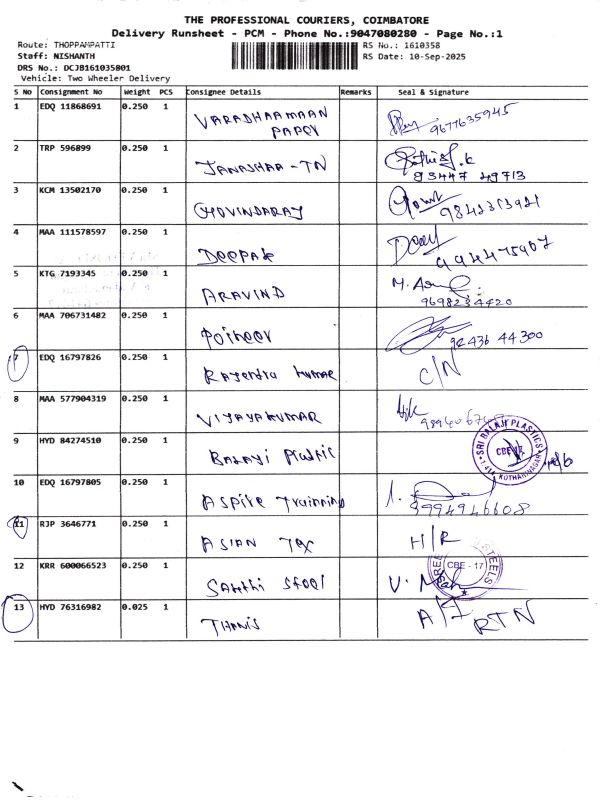 THE PROFESSIONAL COURIERS, COIMBATORE
Delivery Runsheet - PCM - Phone No.:9047080280 - Page No.:1
Route: THOPPAMPATTI
RS No.: 1610358
Staff: NISHANTH
RS Date: 10-Sep-2025
DRS No.: DCJB161035801
Vehicle: Two Wheeler Delivery
S No Consignment No Weight PCS Consignee Details Remarks Seal & Signature
1 EDQ 11868691 0.250 1 VARADHAAMAAN 9677635945
PAPER
2 TRP 596899 0.250 1 JANASHAA-TN Sathish.k
93447 49713
3 KCM 13502170 0.250 1 GOVINDARAJ 9842313921
4 MAA 111578597 0.250 1 DEEPAK 994475907
5 KTG 7193345 0.250 1 ARAVIND
9698234420
6 MAA 706731482 0.250 1 POINEER 92436 44300
7 EDQ 16797826 0.250 1 Rajendra kumar C/N
8 MAA 577904319 0.250 1 VIJAYAKUMAR
9 HYD 84274510 0.250 1 BALAJI Plastic SRI BALAJI PLASTICS
CBE-17
KUTHANINAGAR
10 EDQ 16797805 0.250 1 ASPIRE Training 9994946608
11 RJP 3646771 0.250 1 ASIAN Tex H/R
12 KRR 600066523 0.250 1 SAKTHI STEEL CBE - 17
13 HYD 76316982 0.025 1 THANIS A/F RTN